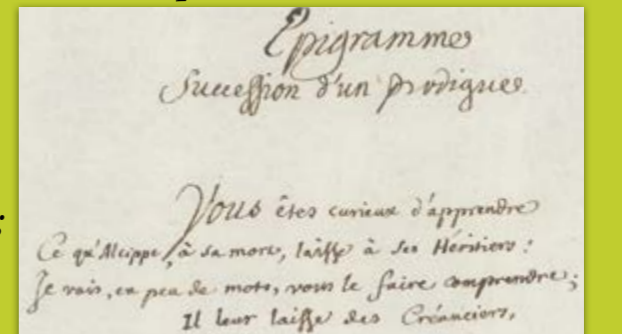 Epigramme
Succession d'un Prodigue
Vous êtes curieux d'apprendre
Ce qu'Alcippe, à sa mort, laisse à ses Héritiers :
Je vais, en peu de mots, vous le faire comprendre ;
Il leur laisse des Créanciers,